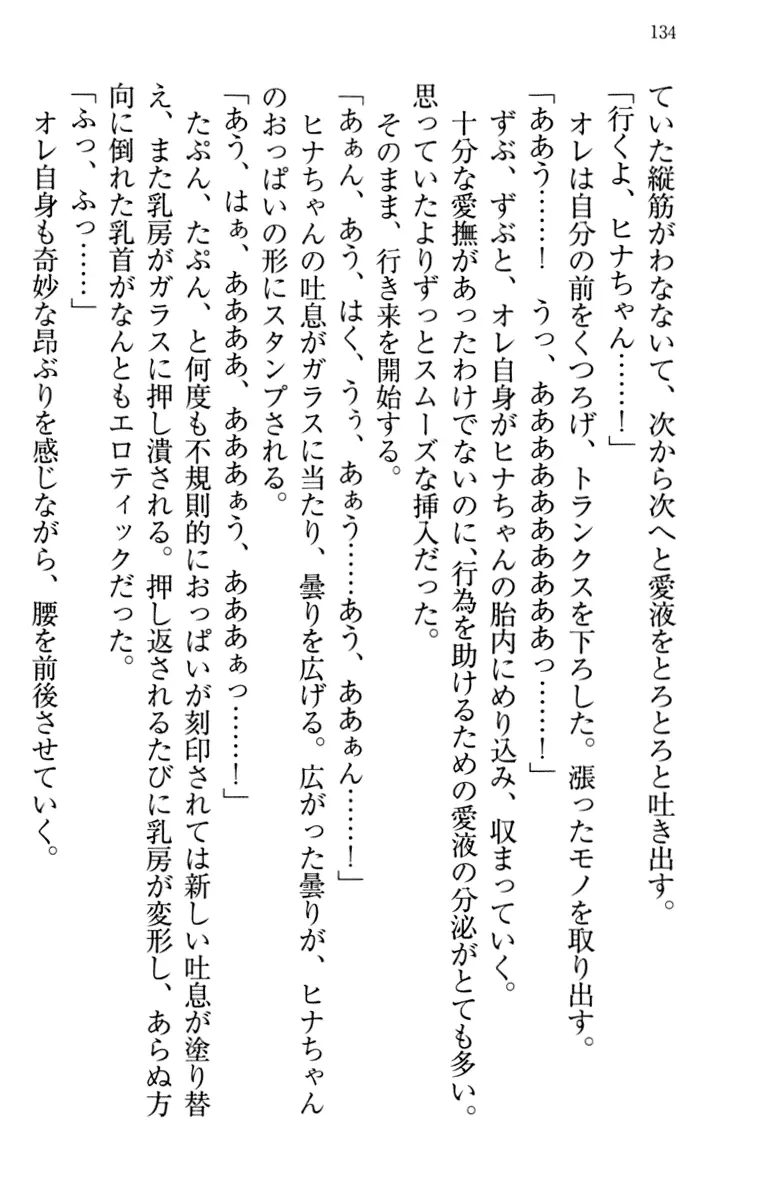 134
ていた縦筋がわなないて、次から次へと愛液をとろとろと吐き出す。
「行くよ、ヒナちゃん……！」
オレは自分の前をくつろげ、トランクスを下ろした。漲ったモノを取り出す。
「ああう……！　うっ、あああああああああっ……！」
ずぶ、ずぶと、オレ自身がヒナちゃんの胎内にめり込み、収まっていく。
十分な愛撫があったわけでないのに、行為を助けるための愛液の分泌がとても多い。
思っていたよりずっとスムーズな挿入だった。
そのまま、行き来を開始する。
「あぁん、あう、はく、うぅ、あぁう……あう、ああぁん……！」
ヒナちゃんの吐息がガラスに当たり、曇りを広げる。広がった曇りが、ヒナちゃん
のおっぱいの形にスタンプされる。
「あう、はぁ、ああああ、あああぁう、あああぁっ……！」
たぷん、たぷん、と何度も不規則的におっぱいが刻印されては新しい吐息が塗り替
え、また乳房がガラスに押し潰される。押し返されるたびに乳房が変形し、あらぬ方
向に倒れた乳首がなんともエロティックだった。
「ふっ、ふっ……」
オレ自身も奇妙な昂ぶりを感じながら、腰を前後させていく。